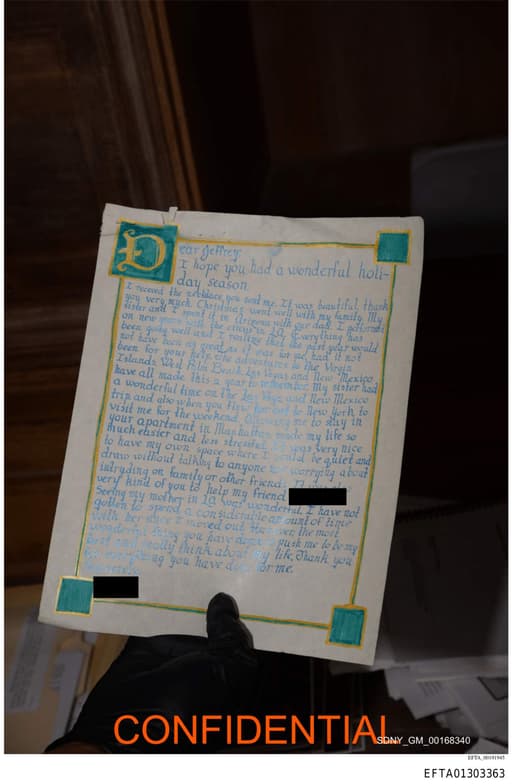 Dear Jeffrey
I hope you had a wonderful holi-
day season.
I received the necklace you sent me. It was beautiful, thank
you very much. Christmas went well with my family. My
sister and I spent it in Arizona with our dad. I performed
on new years with the circus in LA. Everything has
been going well and I realize that the past year would
not have been as great as it was for me had it not
been for your help. The adventures to the Virgin
Islands, West Palm Beach, Las Vegas and New Mexico
have all made this a year to remember. My sister had
a wonderful time on the Las Vegas and New Mexico
trip and also when you flew her out to New York to
visit me for the weekend. Allowing me to stay in
your apartment in Manhattan made my life so
much easier and less stressful. It was very nice
to have my own space where I could be quiet and
draw without talking to anyone or worrying about
intruding on family or other friends. It was
very kind of you to help my friend
Seeing my mother in LA was wonderful. I have not
gotten to spend a considerable amount of time
with her since I moved out. However the most
wonderful thing you have done is push me to be my
best and really think about my life. Thank you
for everything you have done for me.
CONFIDENTIAL
SDNY_GM_00168340
EFTA01303363